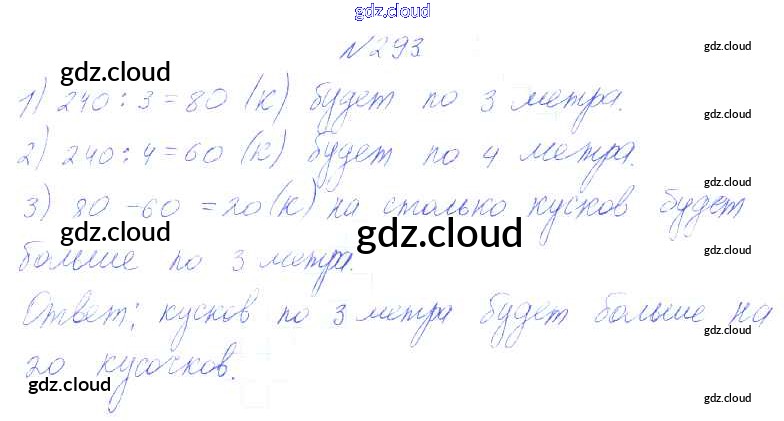 gdz.cloud
№293
gdz.cloud
gdz.cloud
1) 240 : 3 = 80 (к) будет по 3 метра.
gdz.cloud
2) 240 : 4 = 60 (к) будет по 4 метра.
gdz.cloud
3) 80 - 60 = 20 (к) на столько кусков будет
gdz.cloud
gdz.cloud
gdz.cloud
больше по 3 метра.
Ответ: кусков по 3 метра будет больше на
gdz.cloud
20 кусочков.
gdz.cloud
gdz.cloud